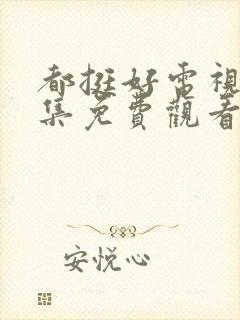 都挺好電視
集免費觀看
安悦心